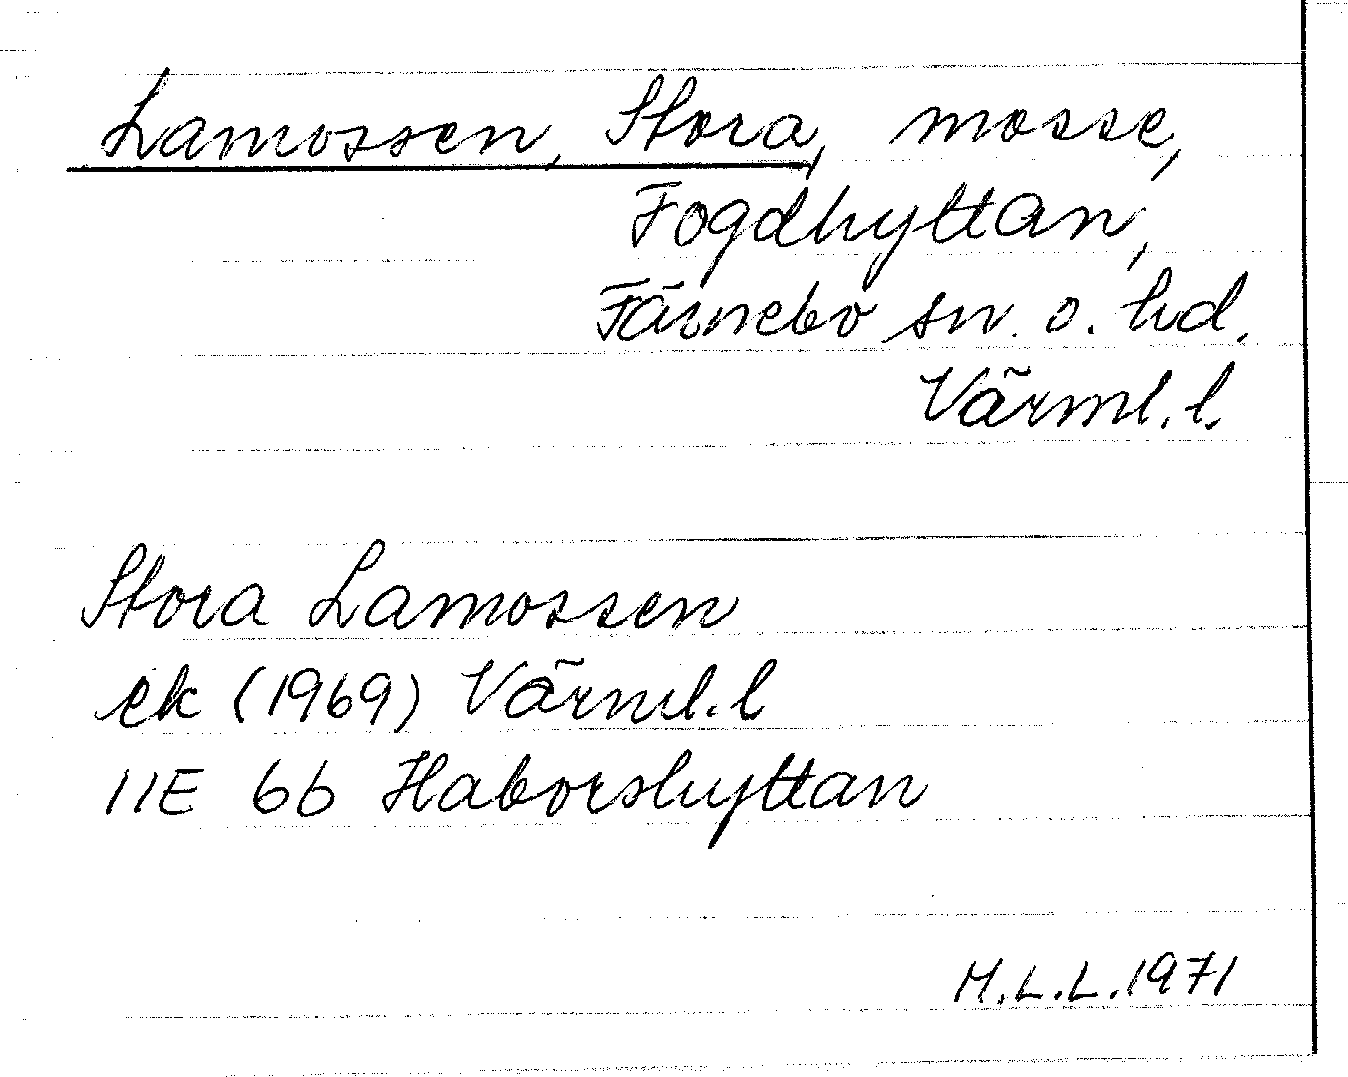 Lamossen, Stora, mosse,
Fogdhyttan,
Färnebo sn. o. hd.
Värml. l.
Stora Lamossen
ek (1969) Värml. l
11E 6b Haborshyttan
M.L.L. 1971